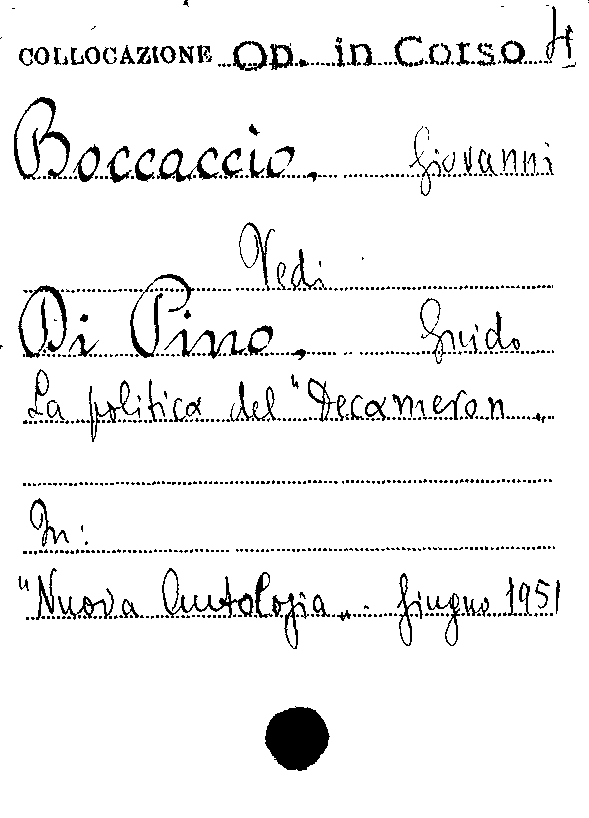 COLLOCAZIONE Op. in Corso 4
Boccaccio, Giovanni
Vedi
Di Pino, Guido
La politica del "Decameron„
In:
"Nuova Antologia„. Giugno 1951